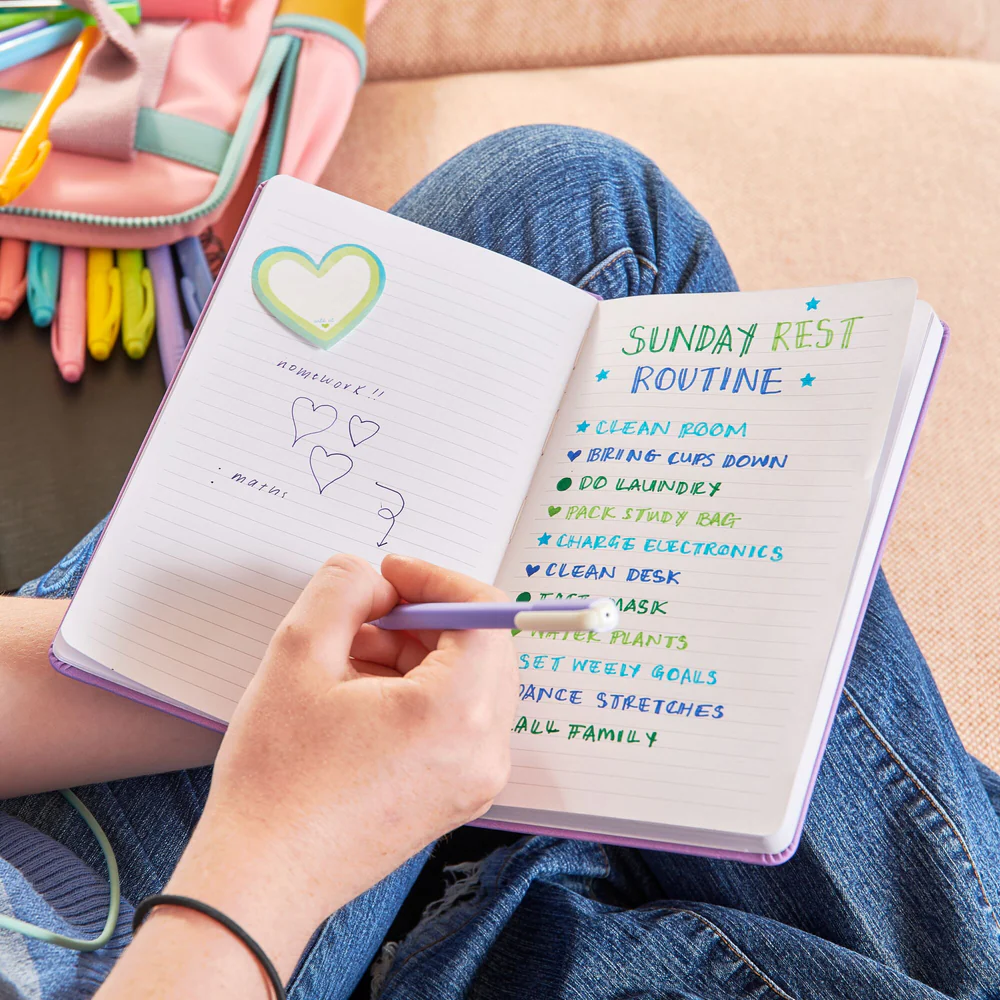 homework !!
: maths
SUNDAY REST
ROUTINE
CLEAN ROOM
BRING CUPS DOWN
DO LAUNDRY
PACK STUDY BAG
CHARGE ELECTRONICS
CLEAN DESK
FACE MASK
WATER PLANTS
SET WEELY GOALS
DANCE STRETCHES
CALL FAMILY